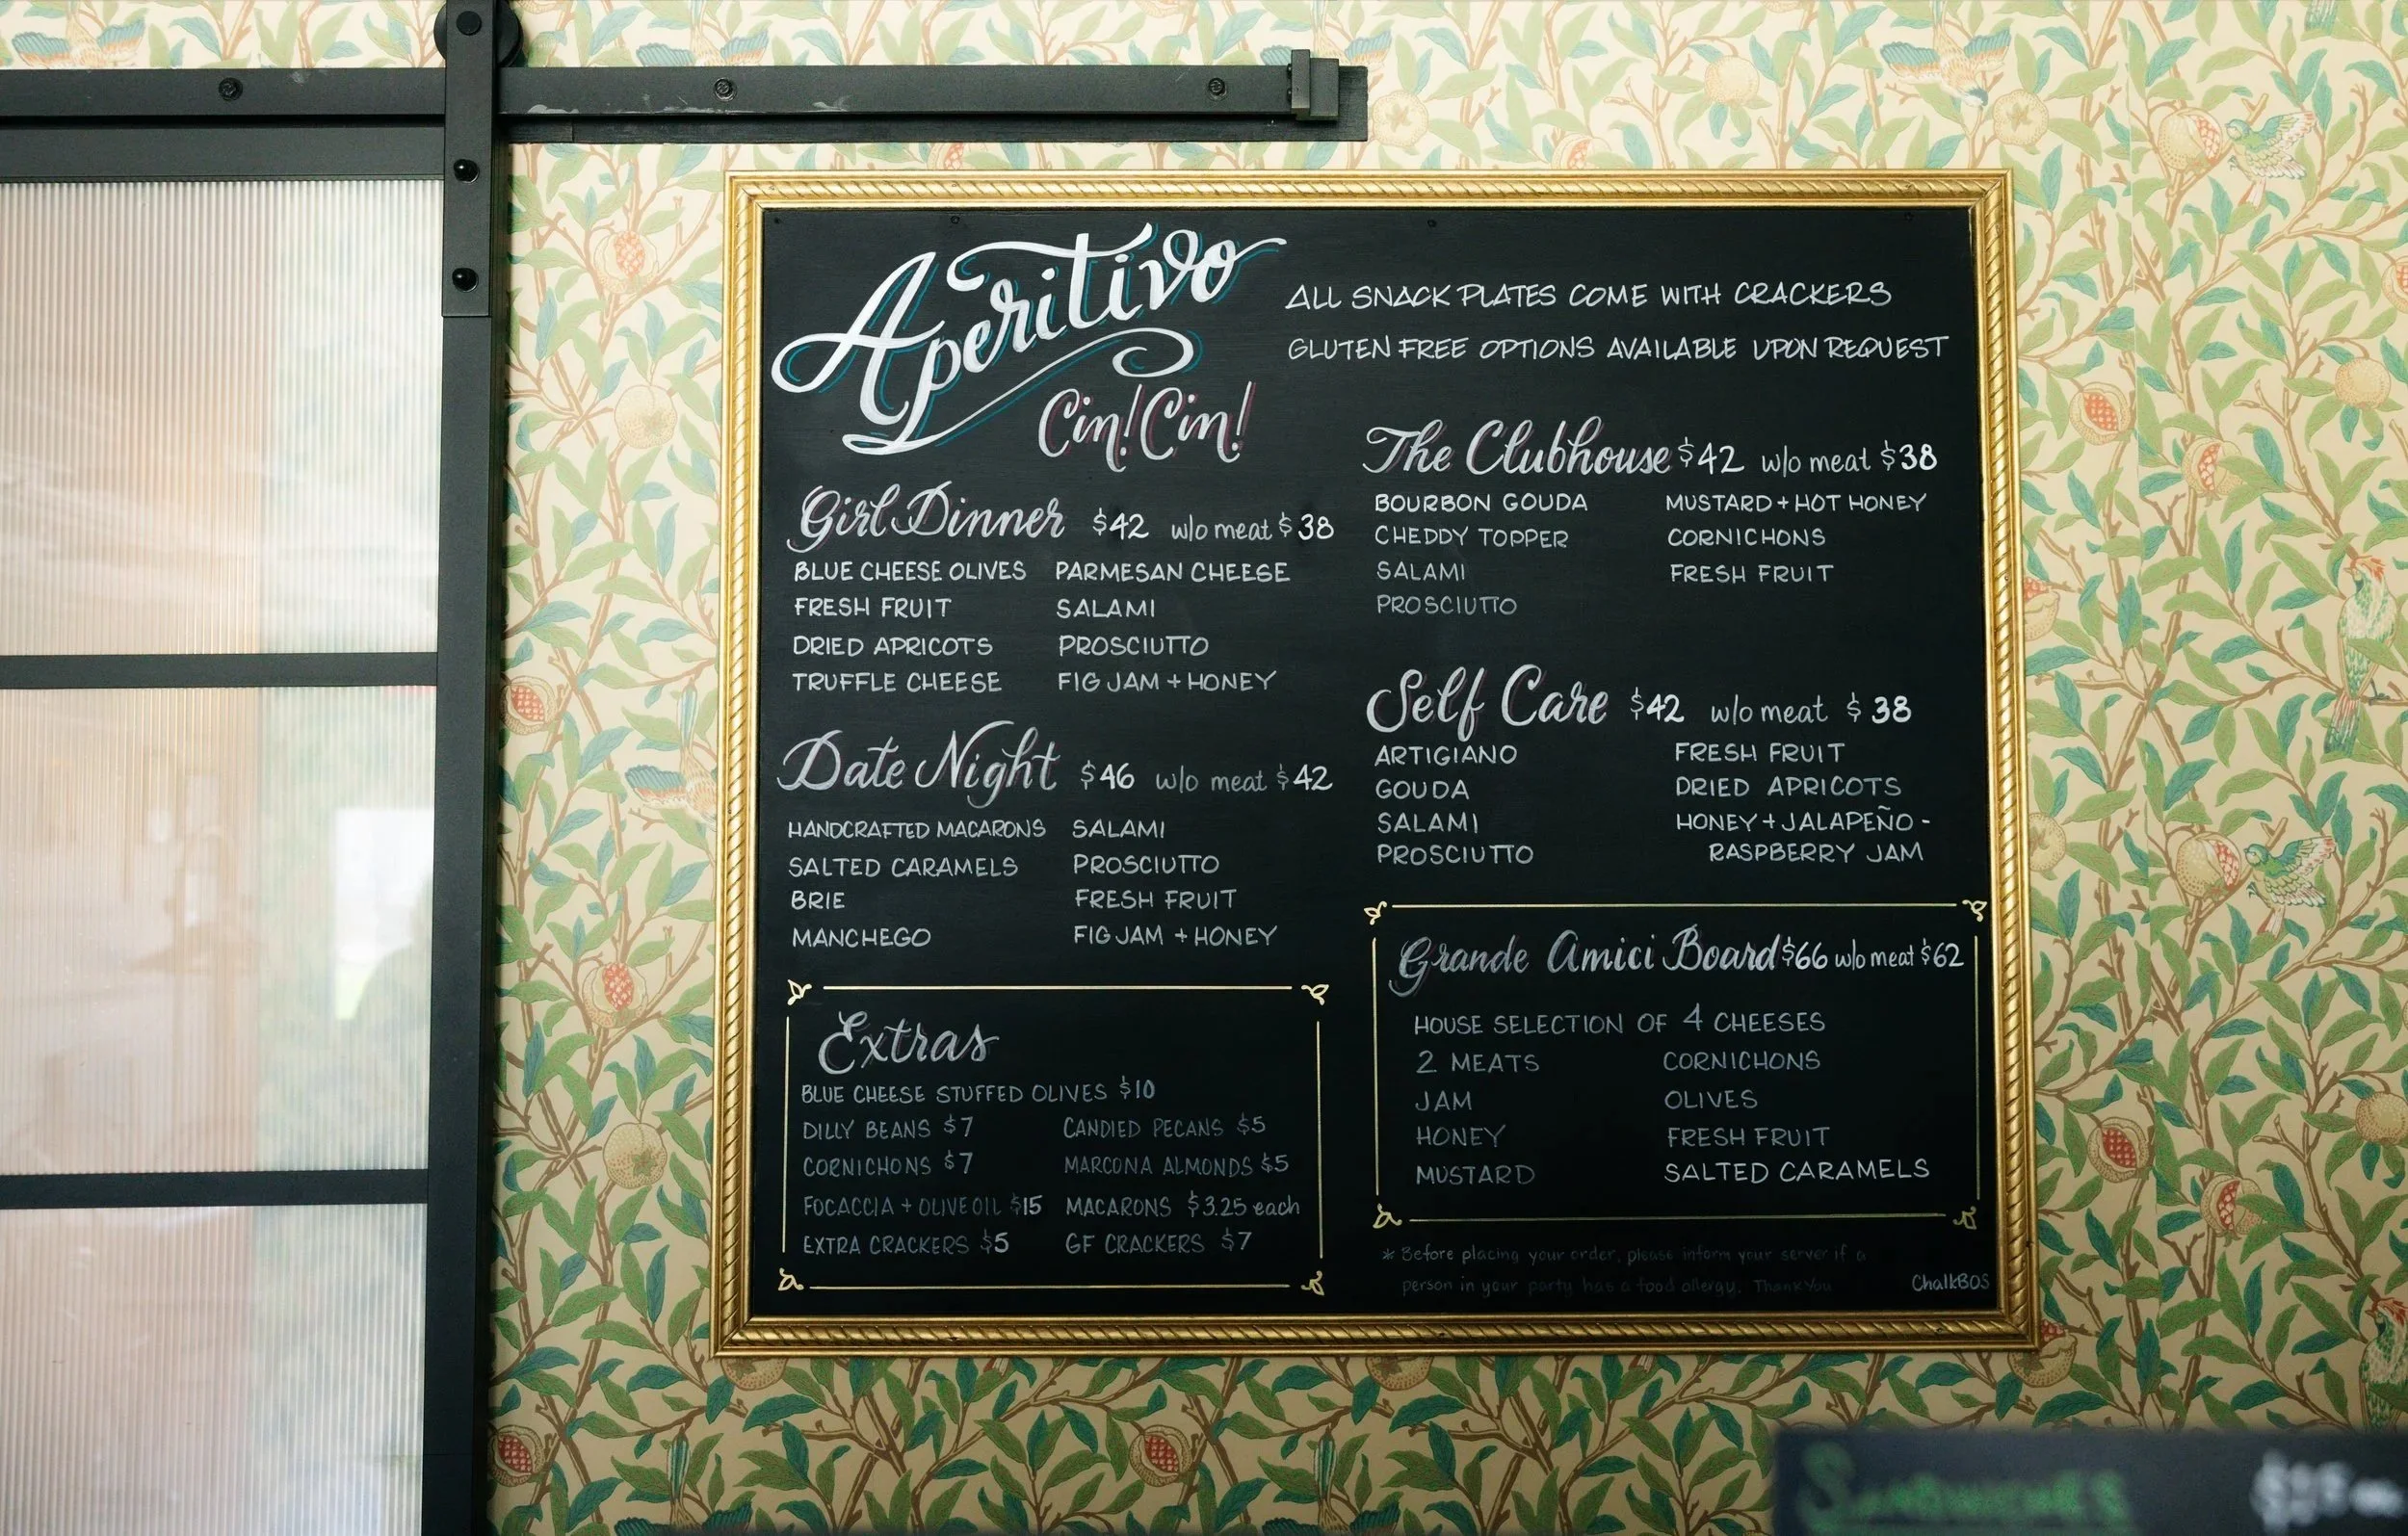 Aperitivo
Cin! Cin!
ALL SNACK PLATES COME WITH CRACKERS
GLUTEN FREE OPTIONS AVAILABLE UPON REQUEST
Girl Dinner $42 w/o meat $38
BLUE CHEESE OLIVES PARMESAN CHEESE
FRESH FRUIT SALAMI
DRIED APRICOTS PROSCIUTTO
TRUFFLE CHEESE FIG JAM + HONEY
Date Night $46 w/o meat $42
HANDCRAFTED MACARONS SALAMI
SALTED CARAMELS PROSCIUTTO
BRIE FRESH FRUIT
MANCHEGO FIG JAM + HONEY
Extras
BLUE CHEESE STUFFED OLIVES $10
DILLY BEANS $7 CANDIED PECANS $5
CORNICHONS $7 MARCONA ALMONDS $5
FOCACCIA + OLIVE OIL $15 MACARONS $3.25 each
EXTRA CRACKERS $5 GF CRACKERS $7
The Clubhouse $42 w/o meat $38
BOURBON GOUDA MUSTARD + HOT HONEY
CHEDDY TOPPER CORNICHONS
SALAMI FRESH FRUIT
PROSCIUTTO
Self Care $42 w/o meat $38
ARTIGIANO FRESH FRUIT
GOUDA DRIED APRICOTS
SALAMI HONEY + JALAPEÑO -
PROSCIUTTO RASPBERRY JAM
Grande Amici Board $66 w/o meat $62
HOUSE SELECTION OF 4 CHEESES
2 MEATS CORNICHONS
JAM OLIVES
HONEY FRESH FRUIT
MUSTARD SALTED CARAMELS
* Before placing your order, please inform your server if a
person in your party has a food allergy. Thank You
ChalkBOS